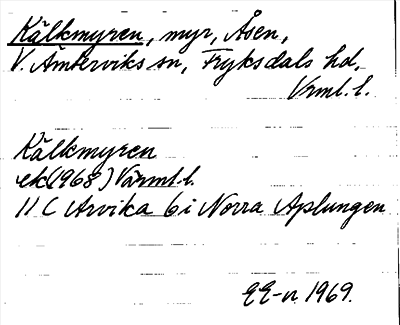 Kälkmyren, myr, Åsen,
V. Ämterviks sn, Fryksdals hd,
Vrml. l.
Kälkmyren
ek(1968) Värml. l.
11 C Arvika 6 i Norra Aplungen
EE-n 1969.